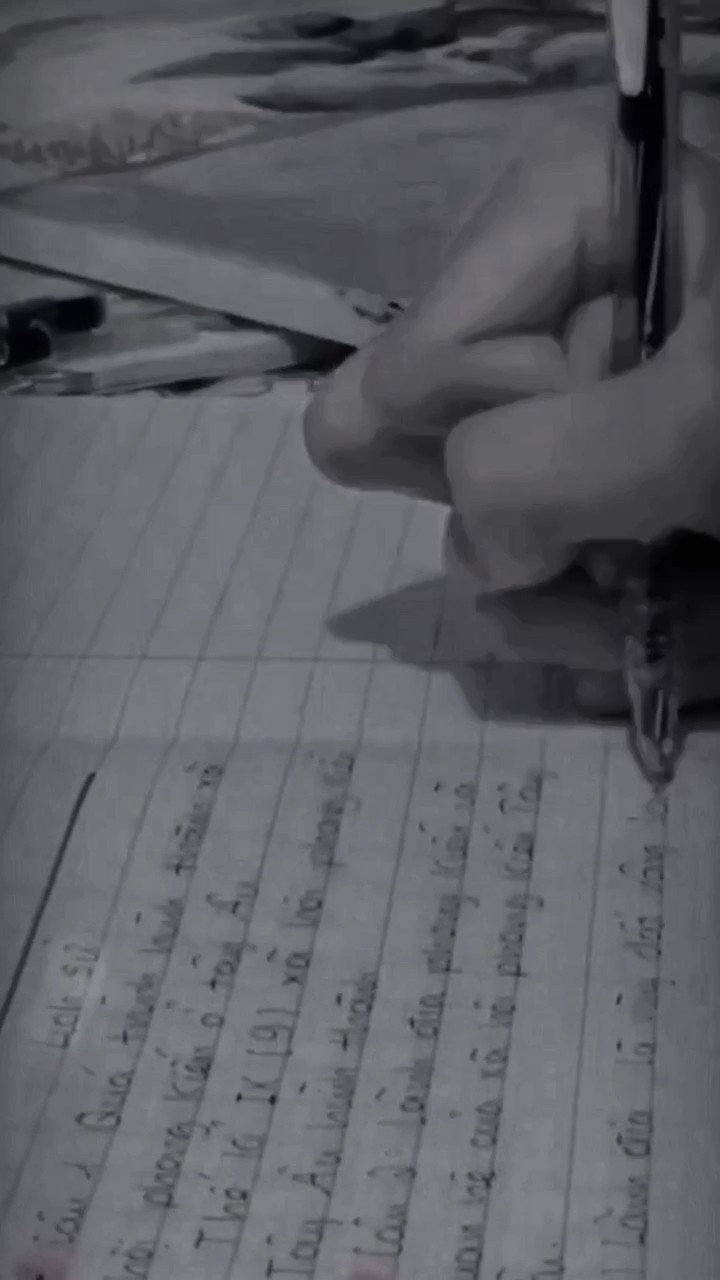 Lịch sử
Câu 1 Quá trình hình thành xã
hội phong kiến ở tây Âu
Thế kỉ IX (9) xã hội phong kiến
Tây Âu hình thành
Câu 2: Lãnh địa phong kiến và
quan hệ của xã hội phong kiến Tây
Âu.
Lãnh địa là vùng đất rộng